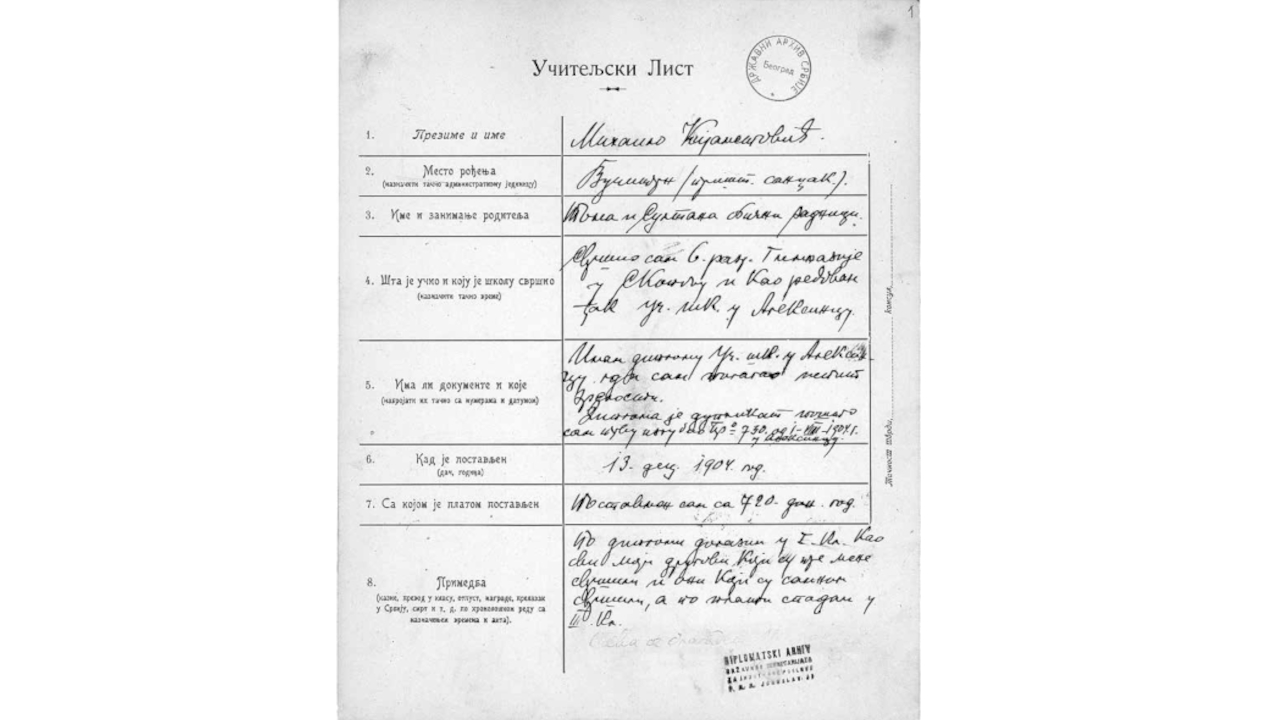 1
Учитељски Лист
ДРЖАВНИ АРХИВ СРБИЈЕ
Београд
1. Презиме и име
Михаило
2. Место рођења
(назначити тачно административну јединицу)
(пришт. санџак).
3. Име и занимање родитеља
и Султана обични радници.
4. Шта је учио и коју је школу свршио
(назначити тачно време)
Свршио сам 6. раз. Гимназије
у Скопљу и као редован
ђак уч. шк. у Алексинцу.
5. Има ли документе и које
(назројати их тачно са нумерама и датумом)
Имам диплому уч. шк. у Алексин-
цу где сам полагао испит
зрелости.
Диплома је дупликат
сам 730. од 1-VIII-1904 г.
у Алексинцу.
6. Кад је постављен
(дан, година)
13. дец. 1904. год.
7. Са којом је платом постављен
Постављен сам са 720. дин. год.
8. Примедба
(казне, превод у класу, отпуст, награде, прелазак
у Србију, смрт и т. д. по хронолошком реду са
назначењем времена и акта).
По дипломи долазим у I. кл. као
сви моји другови који су пре мене
свршили и они који су самном
свршили, а по плати спадам у
III. кл.
Тачност тврди, консул,
DIPLOMATSKI ARHIV